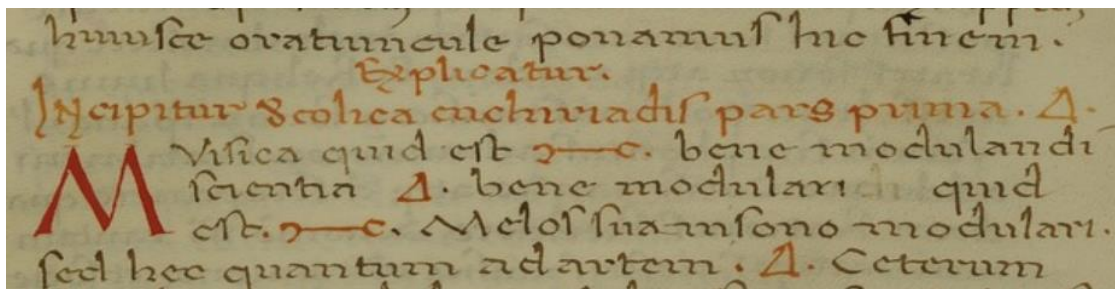 huiusce oratiuncule ponamus hic finem.
Explicatur.
Incipitur Scolica enchiriadis pars prima. Δ.
MVisica quid est. bene modulandi
scientia Δ. bene modulari quid
est. Melos suauisono modulari.
sed hec quantum ad artem. Δ. Ceterum